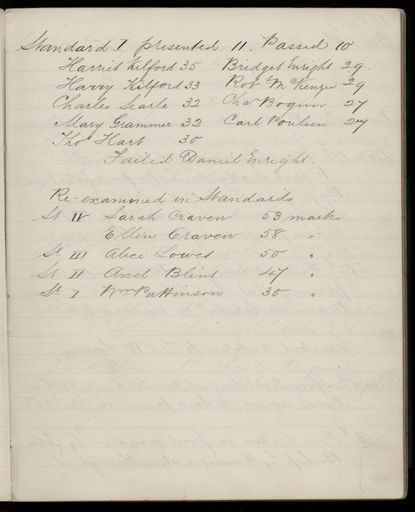 Standard I presented 11. Passed 10
Harriet Kilford 35 Bridget Enright 29
Harry Kilford 33 Robt McKenzie 29
Charles Searle 32 Chas Bogun 27
Mary Grammer 32 Carl Poulsen 27
Thos Hart 30
Failed Daniel Enright.
Re-examined in Standards
St IV Sarah Craven 53 marks
Ellin Craven 58 "
St III Alice Lowes 50 "
St II Axel Blint 47 "
St I Wm Pattinson 30 "